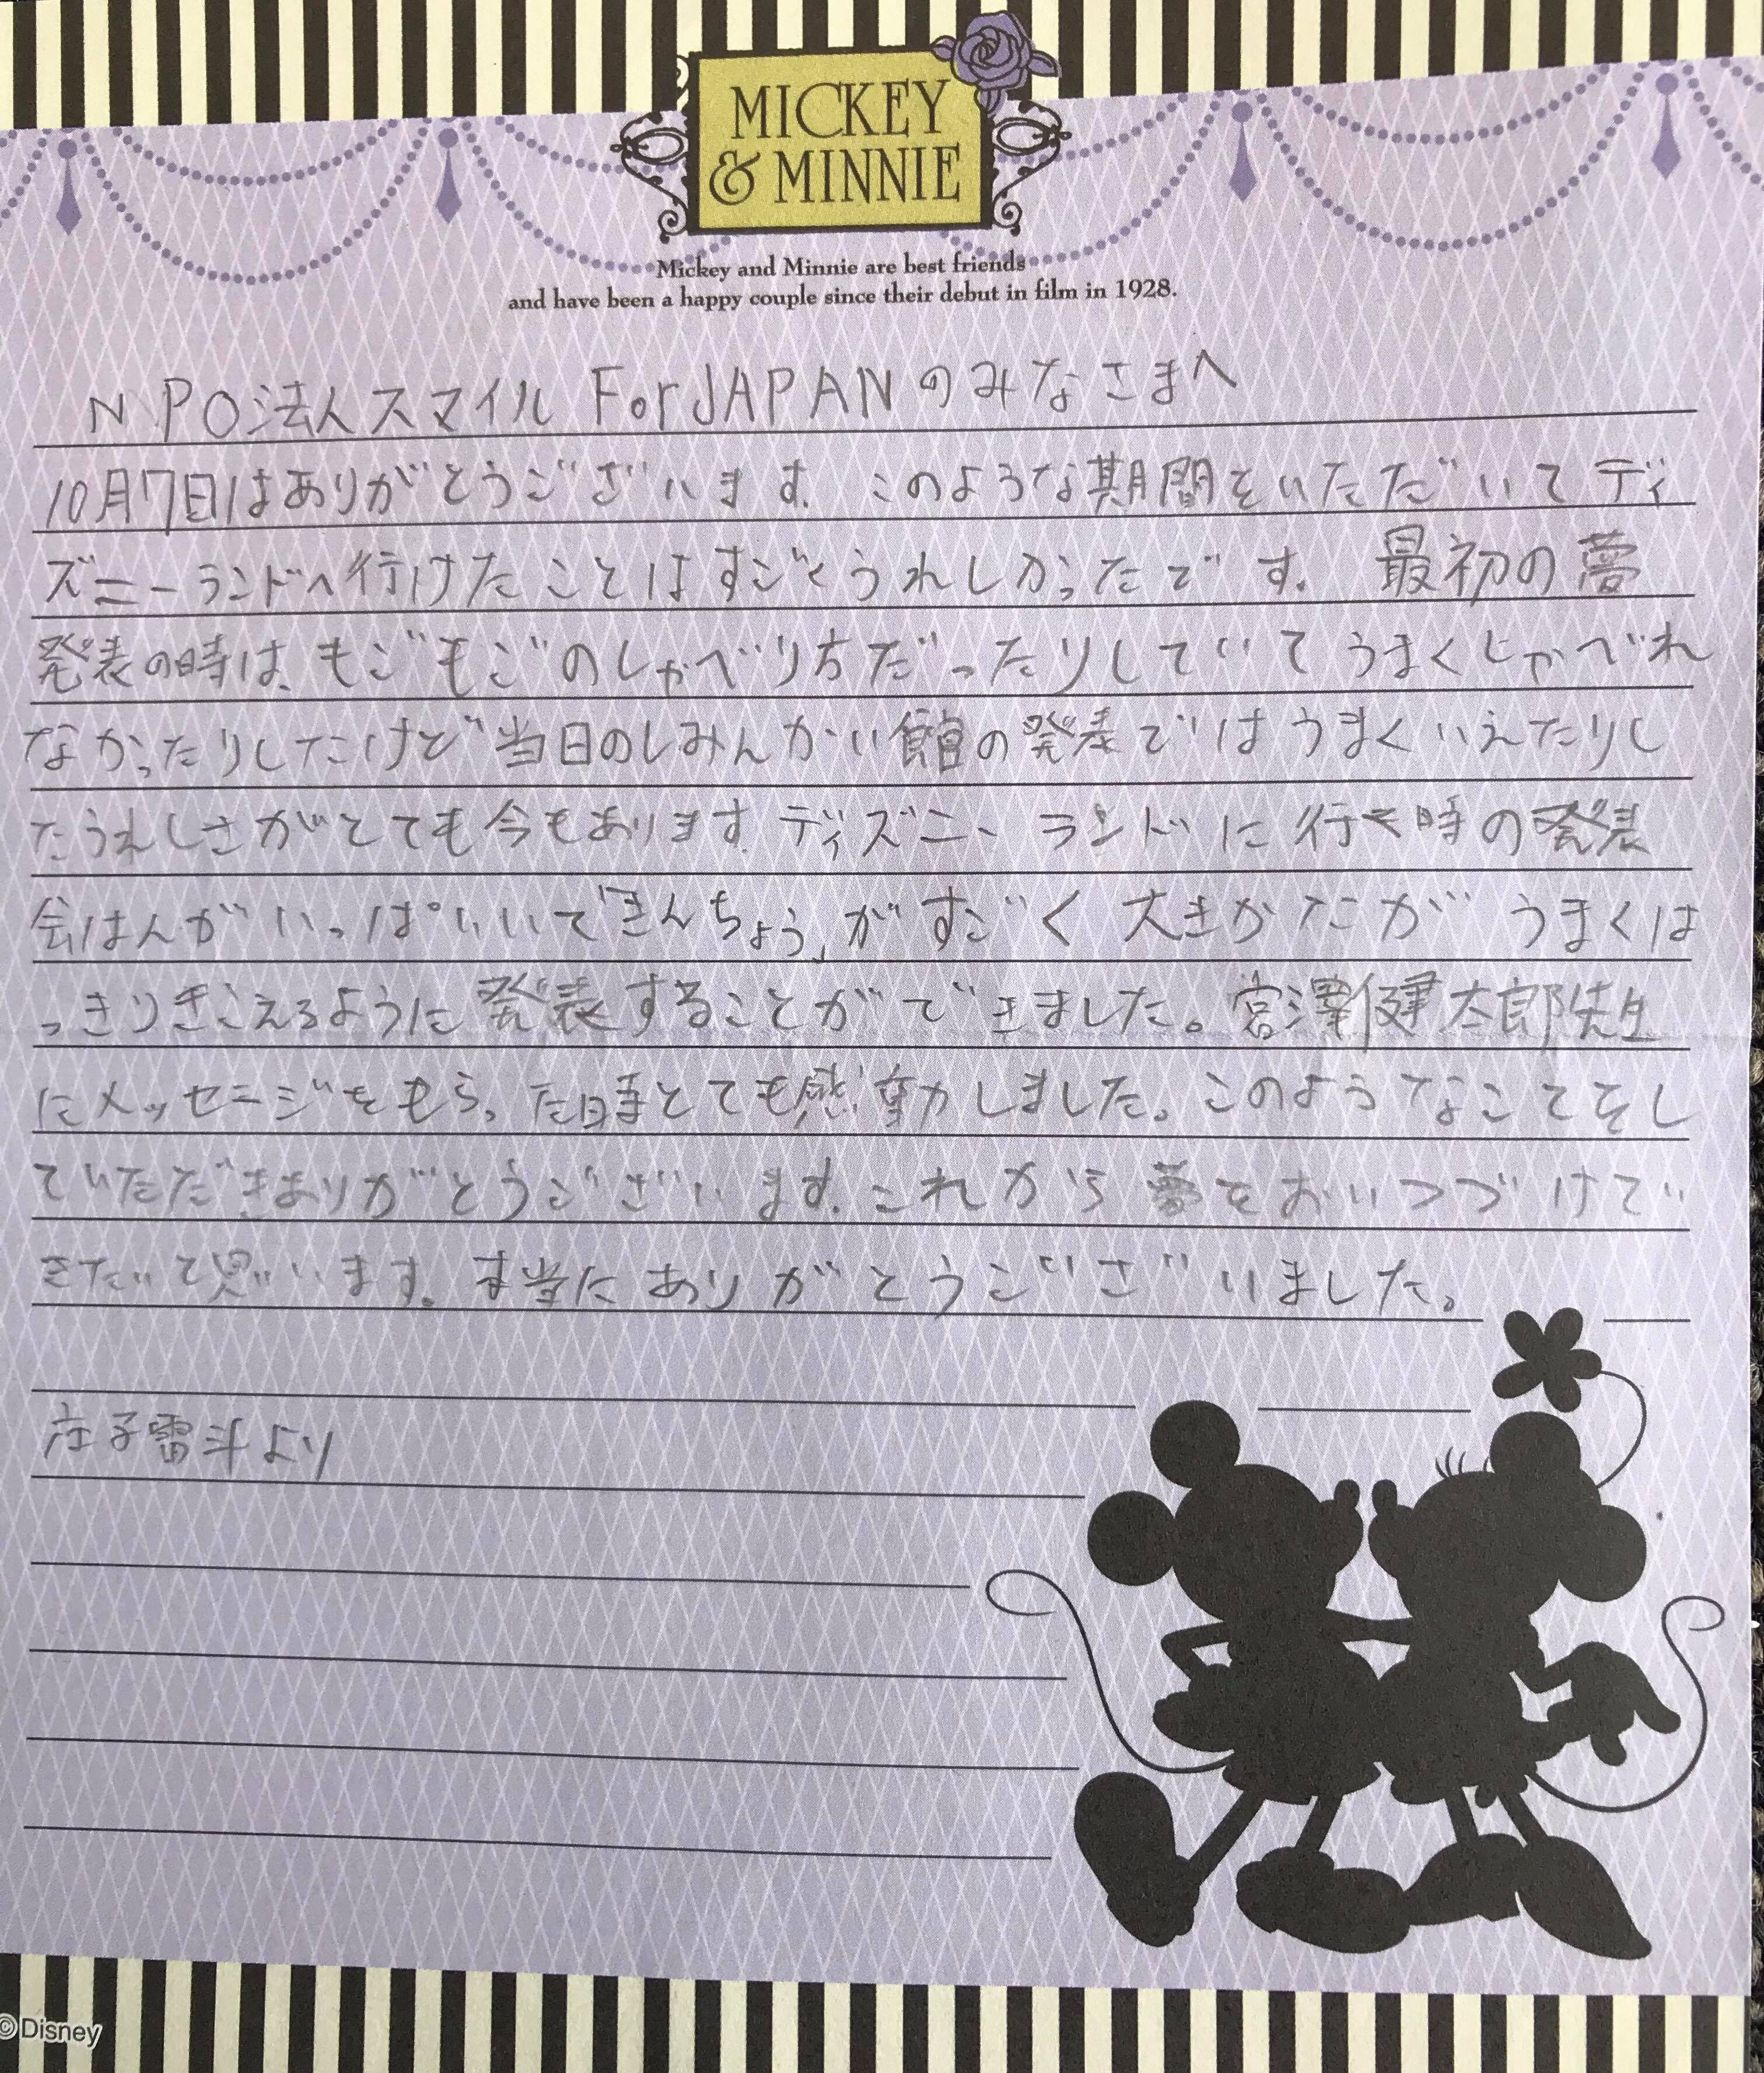 MICKEY
& MINNIE
Mickey and Minnie are best friends
and have been a happy couple since their debut in film in 1928.
NPO法人スマイルForJAPANのみなさまへ
10月7日はありがとうございます。このような期間をいただいてディ
ズニーランドへ行けたことはすごくうれしかったです。最初の夢
発表の時は、もごもごのしゃべり方だったりしていてうまくしゃべれ
なかったりしたけど当日のしみんかい館の発表ではうまくいえたりし
たうれしさがとても今もあります。ディズニーランドに行き時の発表
会はんがいっぱいいて「きんちょう」がすごく大きかたがうまくは
っきりきこえるように発表することができました。宮澤健太郎先生
にメッセージをもらった時とても感動しました。このようなことをし
ていただきありがとうございます。これから夢をおいつづけてい
きたいと思います。本当にありがとうございました。
庄子雷斗より
©Disney